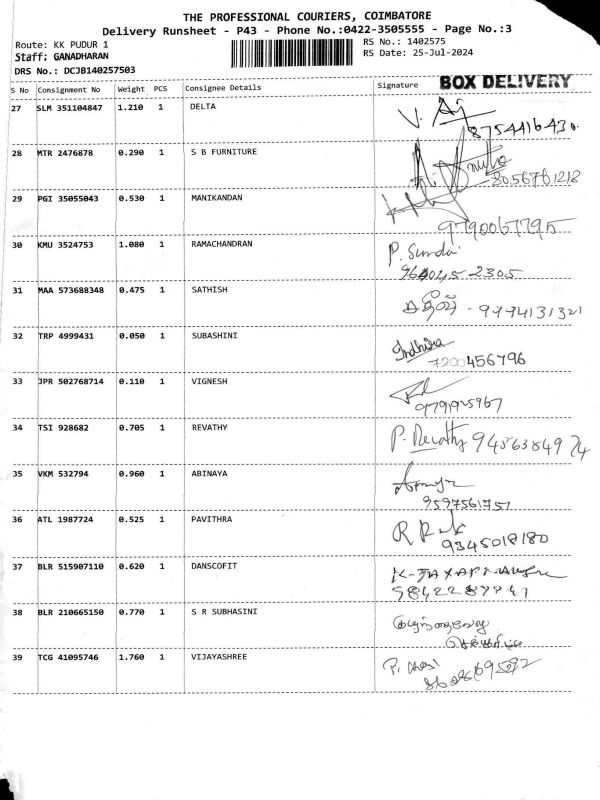 THE PROFESSIONAL COURIERS, COIMBATORE
Delivery Runsheet - P43 - Phone No.:0422-3505555 - Page No.:3
Route: KK PUDUR 1
RS No.: 1402575
Staff: GANADHARAN
RS Date: 25-Jul-2024
DRS No.: DCJB140257503
BOX DELIVERY
S No Consignment No Weight PCS Consignee Details Signature
27 SLM 351104847 1.210 1 DELTA
8754416430
28 MTR 2476878 0.290 1 S B FURNITURE
8056761218
29 PGI 35055043 0.530 1 MANIKANDAN
9790067795
30 KMU 3524753 1.080 1 RAMACHANDRAN P. Sundar
31 MAA 573688348 0.475 1 SATHISH சதீஷ் - 9774131321
32 TRP 4999431 0.050 1 SUBASHINI Indhira
7200456796
33 JPR 502768714 0.110 1 VIGNESH
9791925967
34 TSI 928682 0.705 1 REVATHY P. Revathy
35 VKM 532794 0.960 1 ABINAYA
9597561757
36 ATL 1987724 0.525 1 PAVITHRA
9345018180
37 BLR 515907110 0.620 1 DANSCOFIT
38 BLR 210665150 0.770 1 S R SUBHASINI
39 TCG 41095746 1.760 1 VIJAYASHREE